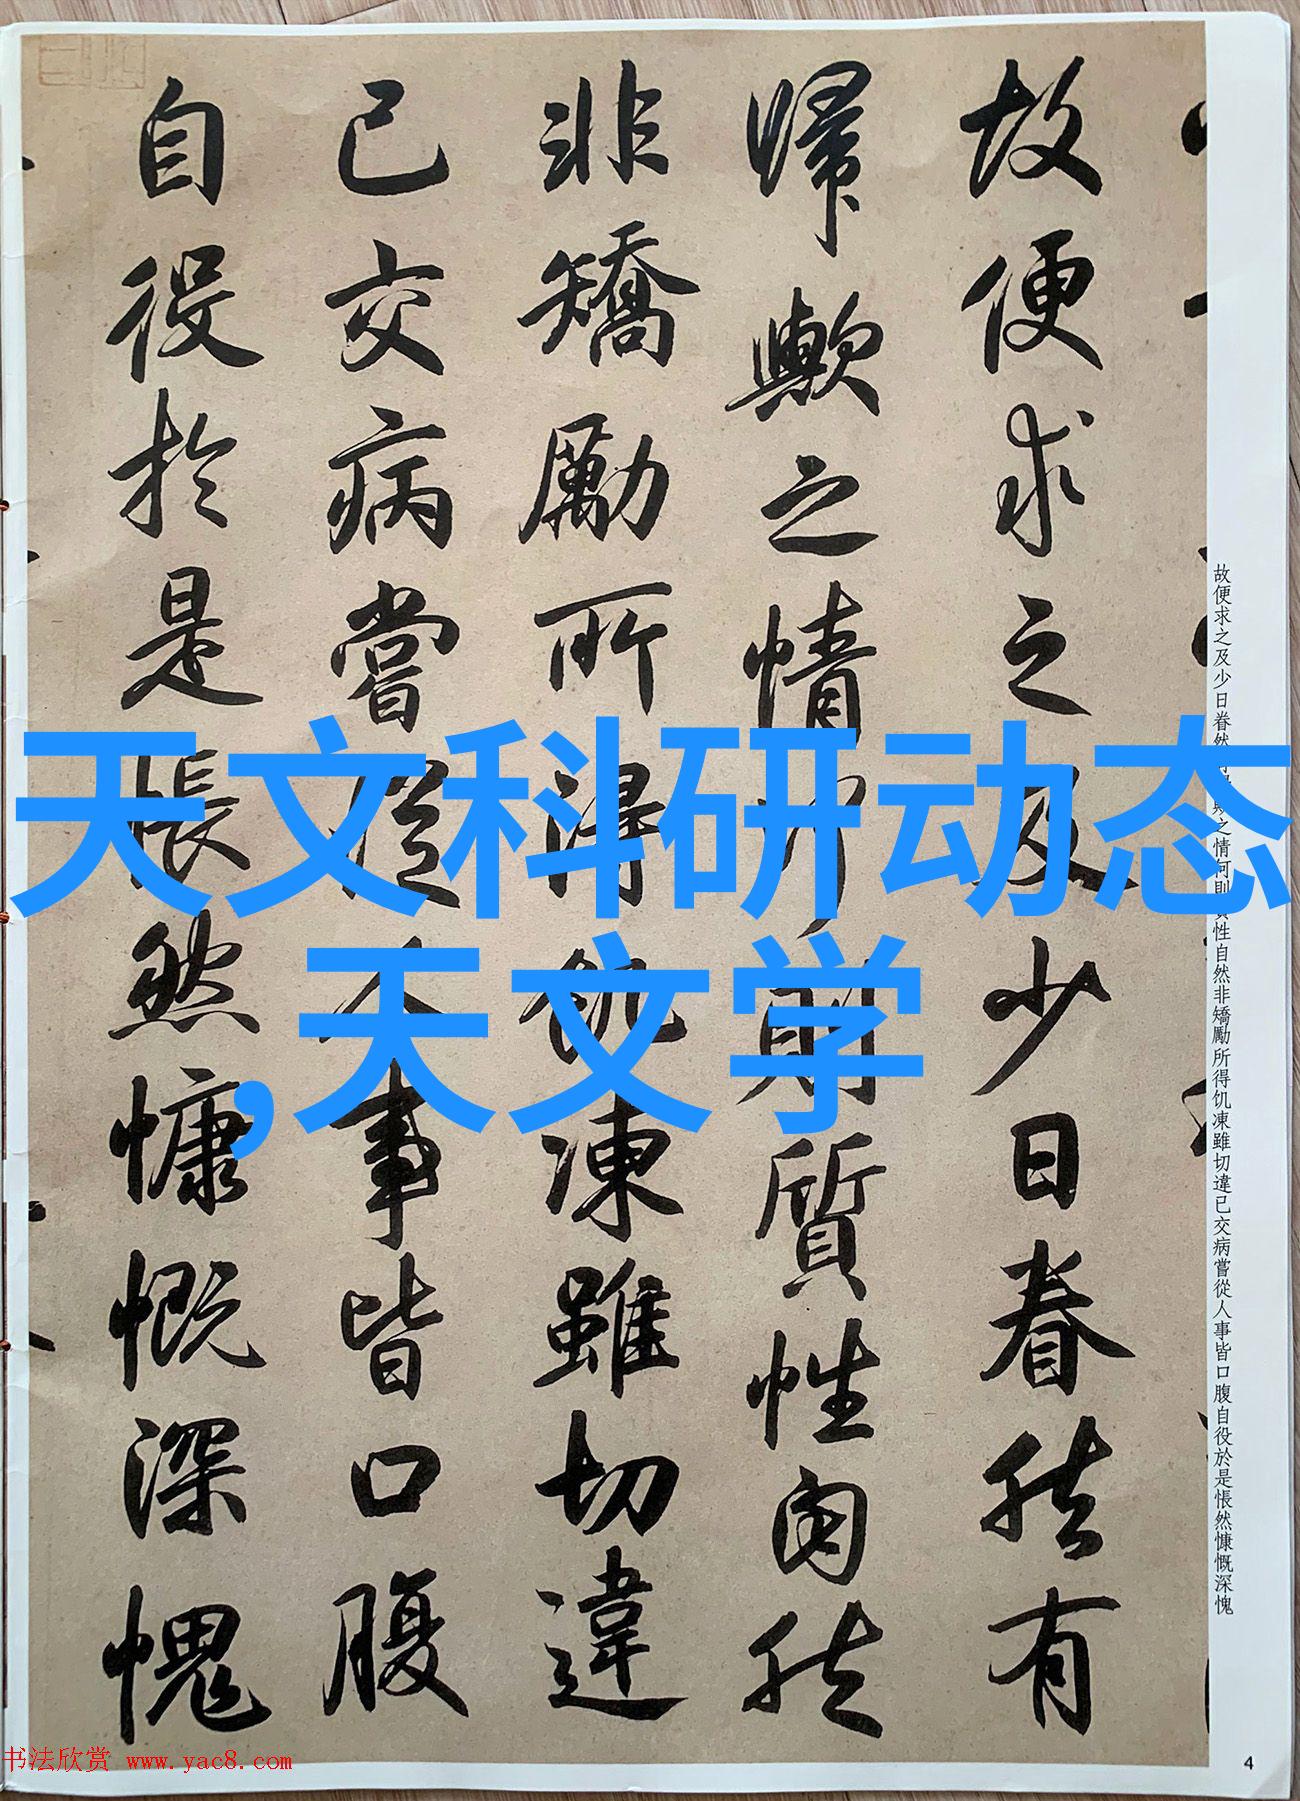 故便求之及少日眷然有
歸歟之情何則質性自然
非矯勵所得飢凍雖切違
已交病嘗從人事皆口腹
自役於是悵然慷慨深愧
故便求之及少日眷然有歸歟之情何則質性自然非矯勵所得饥凍雖切違已交病嘗從人事皆口腹自役於是悵然慷慨深愧
天文科研动态
,天文学
书法欣赏 www.yac8.com
4